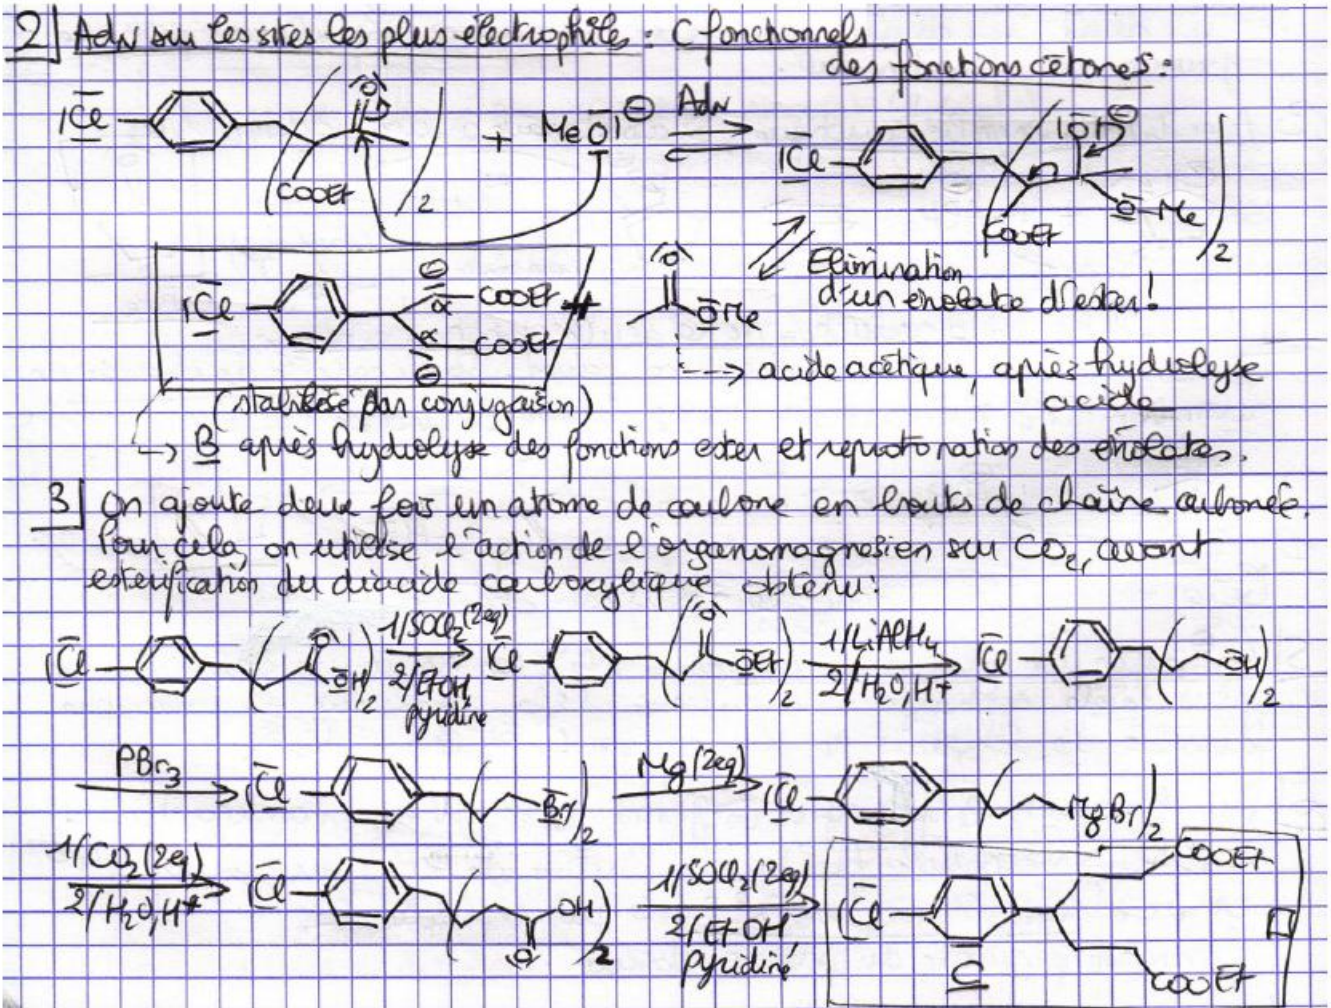 2] AdN sur les sites les plus électrophiles : C fonctionnels
des fonctions cétones :
|C̅l̲ ( (O) COOEt )2 + MeO̲| ⊖ AdN ⇌ |C̅l̲ ( |O̅| ⊖ COOEt O̲-Me )2
|C̅l̲ ⊖ α COOEt α COOEt ⊖ + (O) O̅Me
Elimination
d'un énolate d'ester !
(stabilisé par conjugaison)
--> acide acétique, après hydrolyse
acide
-> B après hydrolyse des fonctions ester et reprotonation des énolates.
3] On ajoute deux fois un atome de carbone en bouts de chaîne carbonée.
Pour cela, on utilise l'action de l'organomagnésien sur CO2, avant
estérification du diacide carboxylique obtenu :
|C̅l̲ ( O O̅H )2 1/SOCl2 (2eq) 2/EtOH, pyridine |C̅l̲ ( (O) O̅Et )2 1/LiAlH4 2/H2O, H+ |C̅l̲ ( O̅H )2
PBr3 |C̅l̲ ( B̅r| )2 Mg (2eq) |C̅l̲ ( MgBr )2
1/CO2 (2eq) 2/H2O, H+ |C̅l̲ ( OH O )2 1/SOCl2 (2eq) 2/EtOH, pyridine |C̅l̲ COOEt COOEt
C